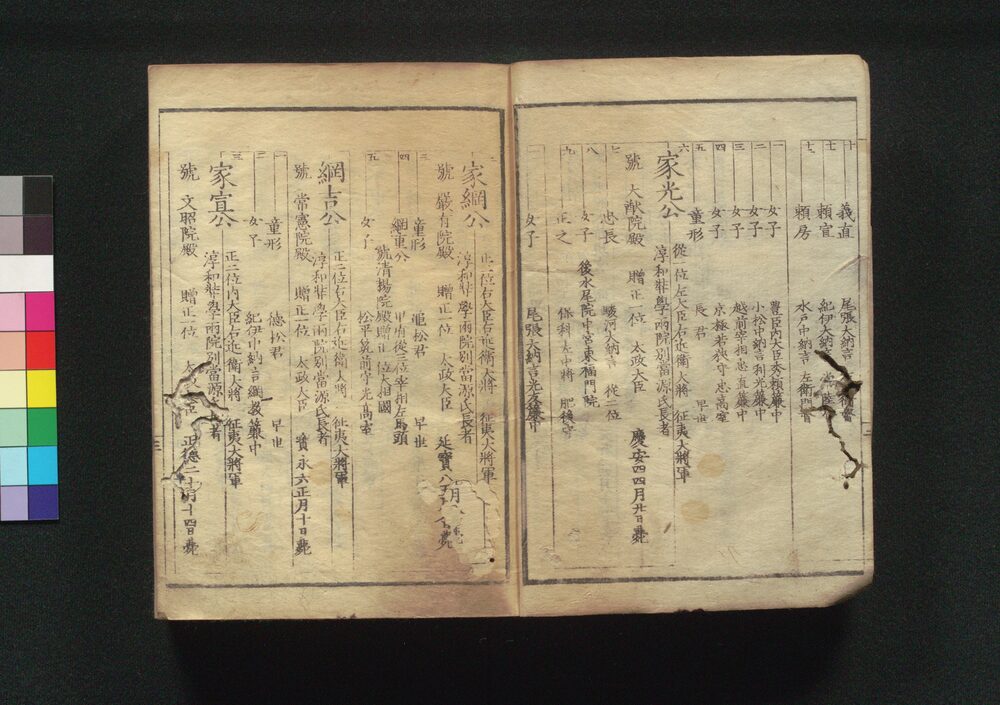 十 義直 尾張大納言
十一 頼宣 紀伊大納言
十二 頼房 水戸中納言 左衛門督
一 女子 豊臣内大臣秀頼簾中
二 女子 小松中納言利光簾中
三 女子 越前宰相忠直簾中
四 女子 京極若狭守忠高室
五 童形 長君 早世
六 家光公 從一位左大臣右近衛大將 征夷大將軍
淳和奬學兩院別當源氏長者
號 大猷院殿 贈正一位 太政大臣 慶安四四月廿日薨
七 忠長 駿河大納言 從二位
八 女子 後水尾院中宮東福門院
九 正之 保科左中將 肥後守
一 女子 尾張大納言光友簾中
二 家綱公 正二位右大臣右近衛大將 征夷大將軍
淳和奬學兩院別當源氏長者
號 嚴有院殿 贈正一位 太政大臣 延寶八 薨
三 童形 亀松君 早世
四 綱重公 甲府後三位宰相左馬頭
號清揚院殿贈正一位大相國
五 女子 松平筑前守光高室
綱吉公 正二位右大臣右近衛大將 征夷大將軍
淳和奬學兩院別當源氏長者
號 常憲院殿 贈正一位 太政大臣 寶永六正月十日薨
一 童形 徳松君 早世
二 女子 紀伊中納言綱教簾中
三 家宣公 正二位内大臣右近衛大將 征夷大將軍
淳和奬學兩院別當源氏長者
號 文昭院殿 贈正一位 正徳二十月十四日薨